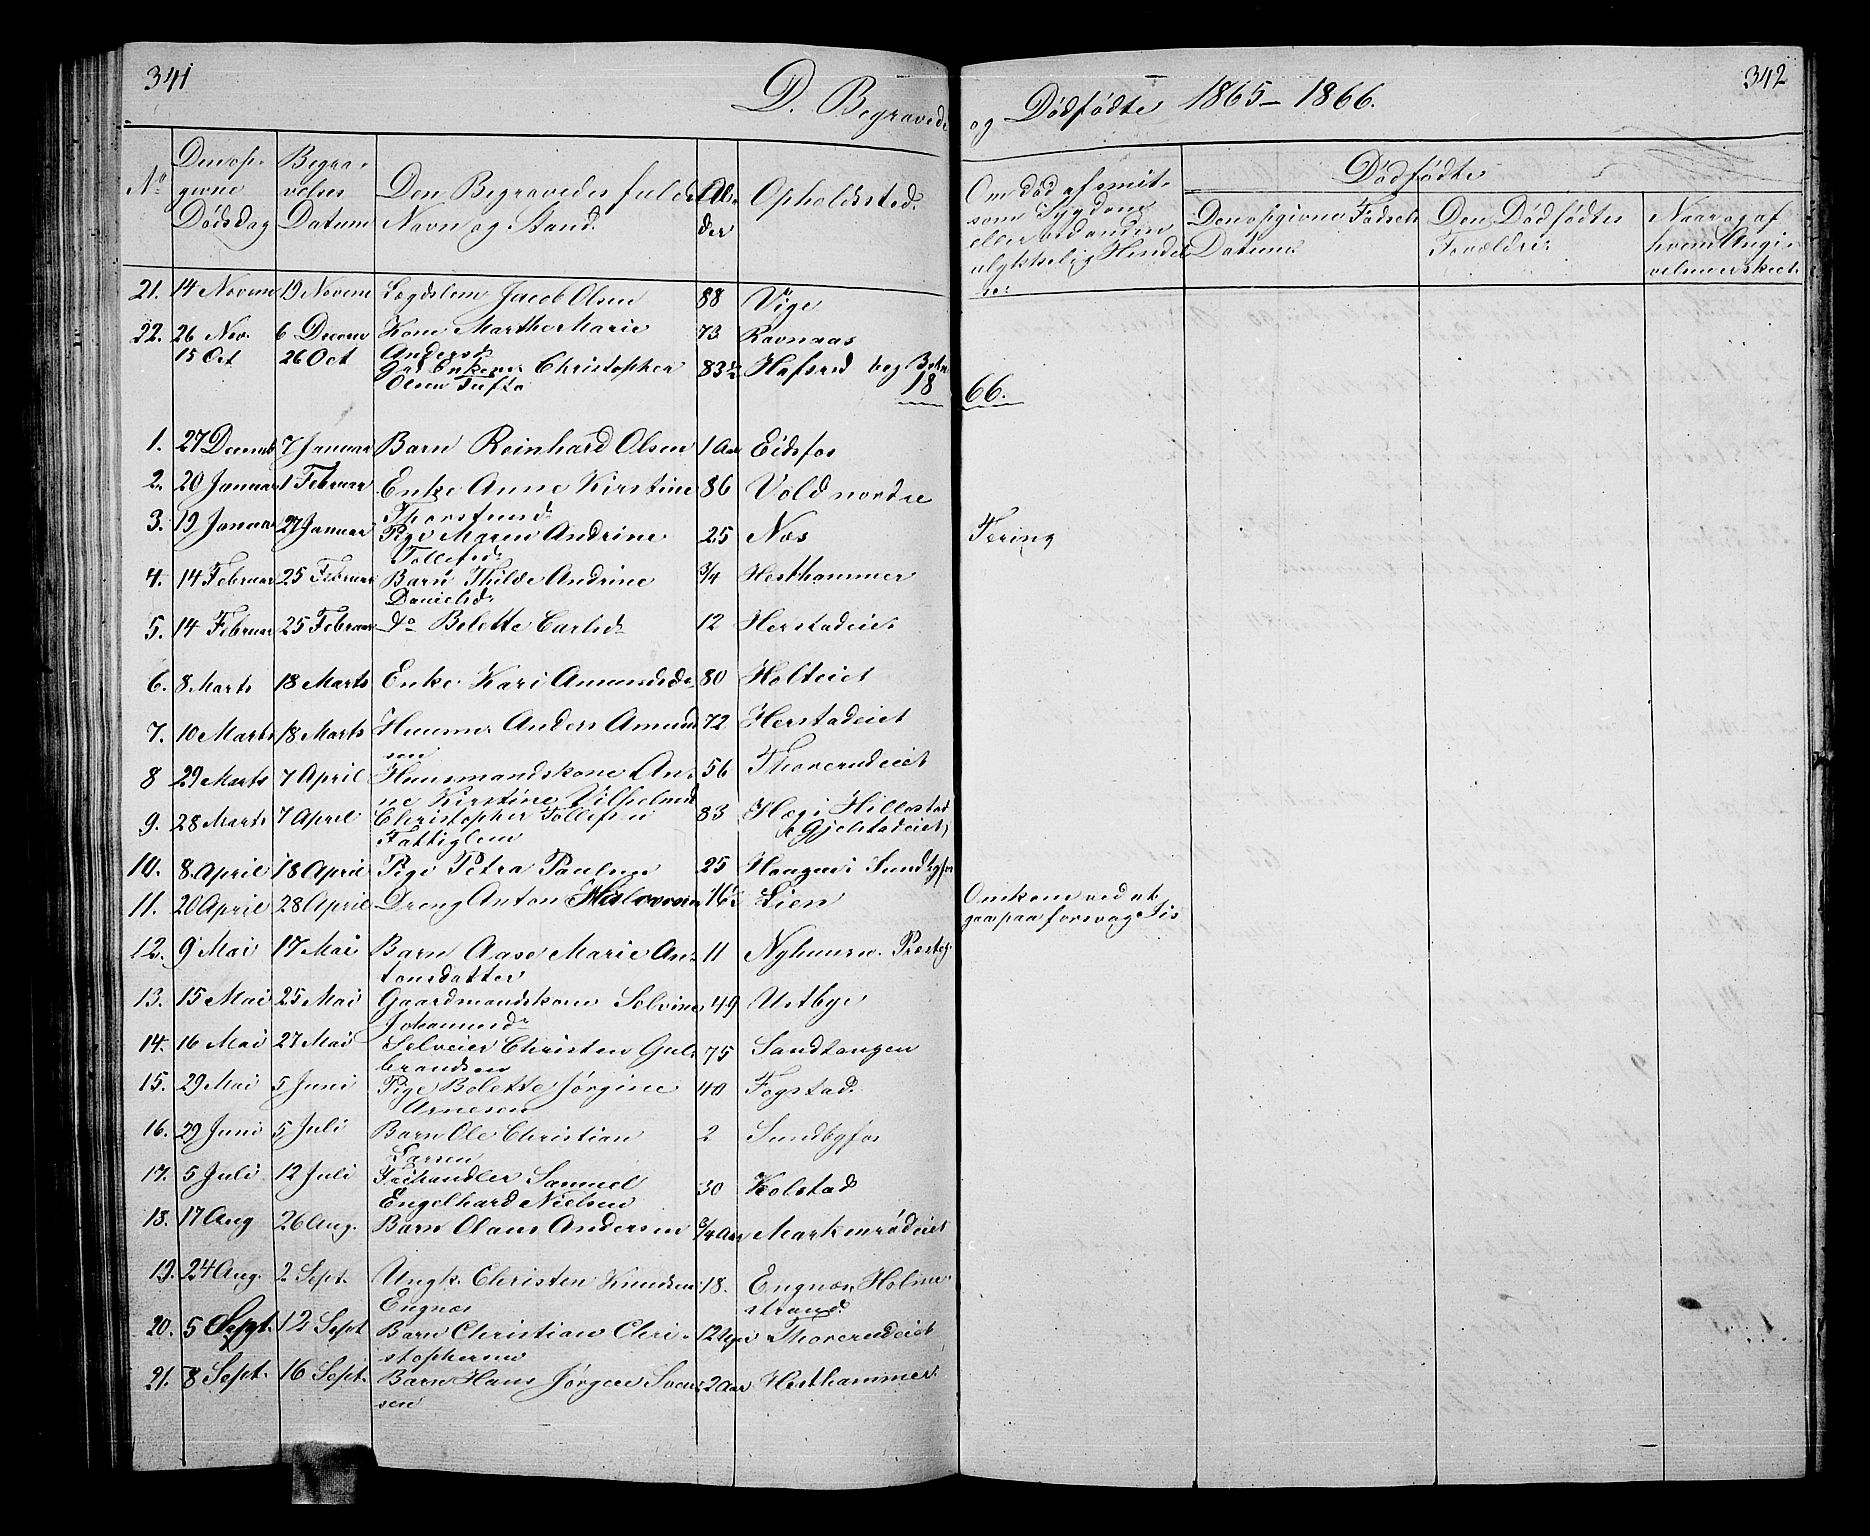 341
D. Begravede
og Dødfødte 1865–1866.
342
No
Den opgivne Dødsdag
Begravelses Datum
Den Begravedes fulde Navn og Stand.
Alder
Opholdssted.
Om død af smitsom Sygdom eller ved anden ulykkelig Hændelse:
Dødfødte
Den opgivne Fødsels Datum
Den Dødfødtes Forældre:
Naar og af hvem Angivelsen er skeet.
21. 14 Novem 19 Novem Lægdslem Jacob Olsen 88 Vige
22. 26 Nov. 6 Decem Kone Marthe Marie Andersd. 73 Ravnaas
15 Oct 26 Oct Christopher Olsen Tufte 83½ Hafsrød beg. Botne
1866.
1. 27 Decemb 7 Januar Barn Reinhard Olsen 1 Aar Eidsfos
2. 20 Januar 1 Februar Enke Anne Kirstine Thorstensd. 86 Vold nordre
3. 19 Januar 27 Januar Pige Maren Andrine Tollefsd. 25 Næs Tæring
4. 14 Februar 25 Februar Barn Thilde Andrine Danielsd. 3/4 Hesthammer
5. 14 Februar 25 Februar Do Belette Carlsd. 12 Herstadeiet
6. 8 Marts 18 Marts Enke Kari Amundsd. 80 Holteiet
7. 10 Marts 18 Marts Huusm. Anders Amundsen 72 Herstadeiet
8 29 Marts 7 April Huusmandskone Anne Kirstine Vilhelmsd 56 Thorerudeiet
9. 28 Marts 7 April Christopher Tollefsen Fattiglem 83 Hæg i Hillestad (Gjelstadeiet)
10. 8 April 18 April Pige Petra Paulsen 25 Haagan i Sundbyfos
11. 20 April 28 April Dreng Anton Halvorsen 16½ Lien Omkom ved at gaa paa for svag Iis
12. 9 Mai 17 Mai Barn Aase Marie Antonsdatter 11 Nyhuusn. Præsteg.
13. 15 Mai 25 Mai Gaardmandskone Solvine Johannesd. 49 Ustbye
14. 16 Mai 27 Mai Selveier Christen Gulbrandsen 75 Sandtangen
15. 29 Mai 5 Juni Pige Bolette Jørgine Arnesen 40 Fogstad.
16. 29 Juni 5 Juli Barn Ole Christian Larsen 2 Sundbyfos
17. 5 Juli 12 Juli Fæhandler Samuel Engelhard Nielsen 30 Kolstad
18. 17 Aug 26 Aug. Barn Olaus Andersen 3/4 Aar Markenrødeiet
19. 24 Aug. 2 Sept. Ungk. Christen Knudsen Engnæs 18. Engnæs, Holmestrand
20. 5 Sept. 12 Sept Barn Christian Christophersen 12 Uger Thorerudeiet
21. 8 Sept. 16 Sept. Barn Hans Jørgen Svensen 2 Aar Hesthammer.